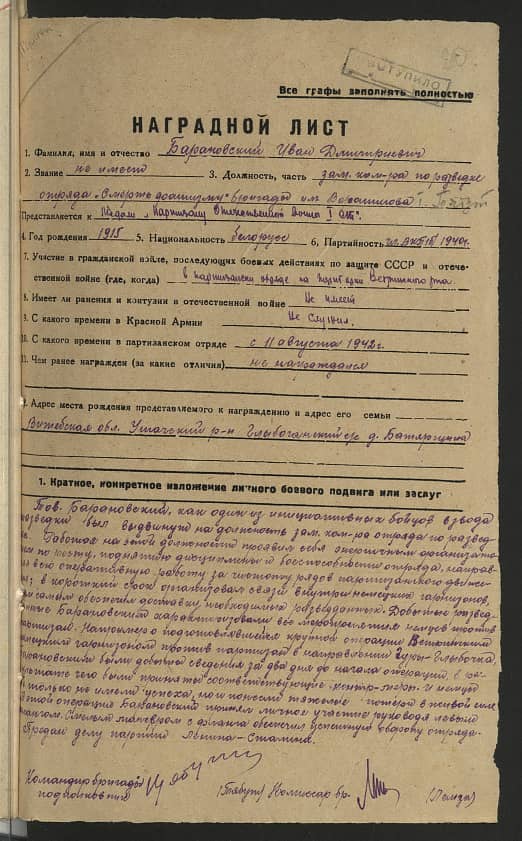 ПОСТУПИЛО
Все графы заполнять полностью
НАГРАДНОЙ ЛИСТ
1. Фамилия, имя и отчество Барановский Иван Дмитриевич
2. Звание не имеет 3. Должность, часть зам. ком-ра по разведке
отряда "Смерть фашизму" бригады им. Ворошилова
Представляется к Медали "Партизану Отечественной Войны I ст".
4. Год рождения 1915 5. Национальность белорус 6. Партийность чл. ВКП(б) 1940г.
7. Участие в гражданской войле, последующих боевых действиях по защите СССР и отече-
ственной войне (где, когда) в партизанском отряде на территории Ветринского р-на
8. Имеет ли ранения и контузии в отечественной войне Не имеет
9. С какого времени в Красной Армии Не служил.
10. С какого времени в партизанском отряде с 11 августа 1942г.
11. Чем ранее награжден (за какие отличия) не награждался
Адрес места рождения представляемого к награждению и адрес его семьи
Витебская обл. Ушачский р-н Глыбочанский с/с д.
1. Краткое, конкретное изложение личного боевого подвига или заслуг
Тов. Барановский, как один из инициативных бойцов взвода
разведки был выдвинут на должность зам. ком-ра отряда по развед-
ке. Работая на этой должности проявил себя энергичным организато-
ром по росту, поднятию дисциплины и боеспособности отряда, направ-
ил всю оперативную работу за чистоту рядов партизанского движе-
ния; в короткий срок организовал связи внутри немецких гарнизонов,
тем самым обеспечил доставку необходимых разведданных. Добытые развед-
данные Барановский характеризовали все мероприятия немцев против
партизан. Например о подготовлявшейся крупной операции Ветринским
немецким гарнизоном против партизан в направлении Глыбочка,
Барановским были добыты сведения за два дня до начала операции, в ре-
зультате чего были приняты соответствующие контр-меры. И немцы
не только не имели успеха, но и понесли тяжелые потери в живой силе.
В этой операции Барановский принял личное участие руководя левым
флангом. Смелым маневром с фланга обеспечил успешную оборону отряда.
Предан делу партии Ленина-Сталина.
Командир бригады
подполковник (Тябут) Комиссар бр. (Лемза)